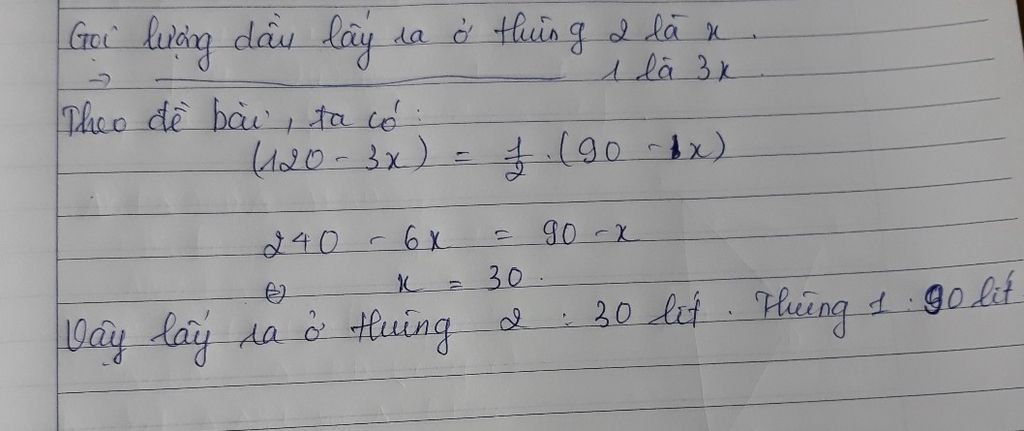 Gọi lượng dầu lấy ra ở thùng 2 là x.
⇒ ———————— 1 là 3x
Theo đề bài, ta có:
(120 - 3x) = 1/2 . (90 - 1x)
240 - 6x = 90 - x
⇔ x = 30.
Vậy lấy ra ở thùng 2 : 30 lít. Thùng 1 : 90 lít